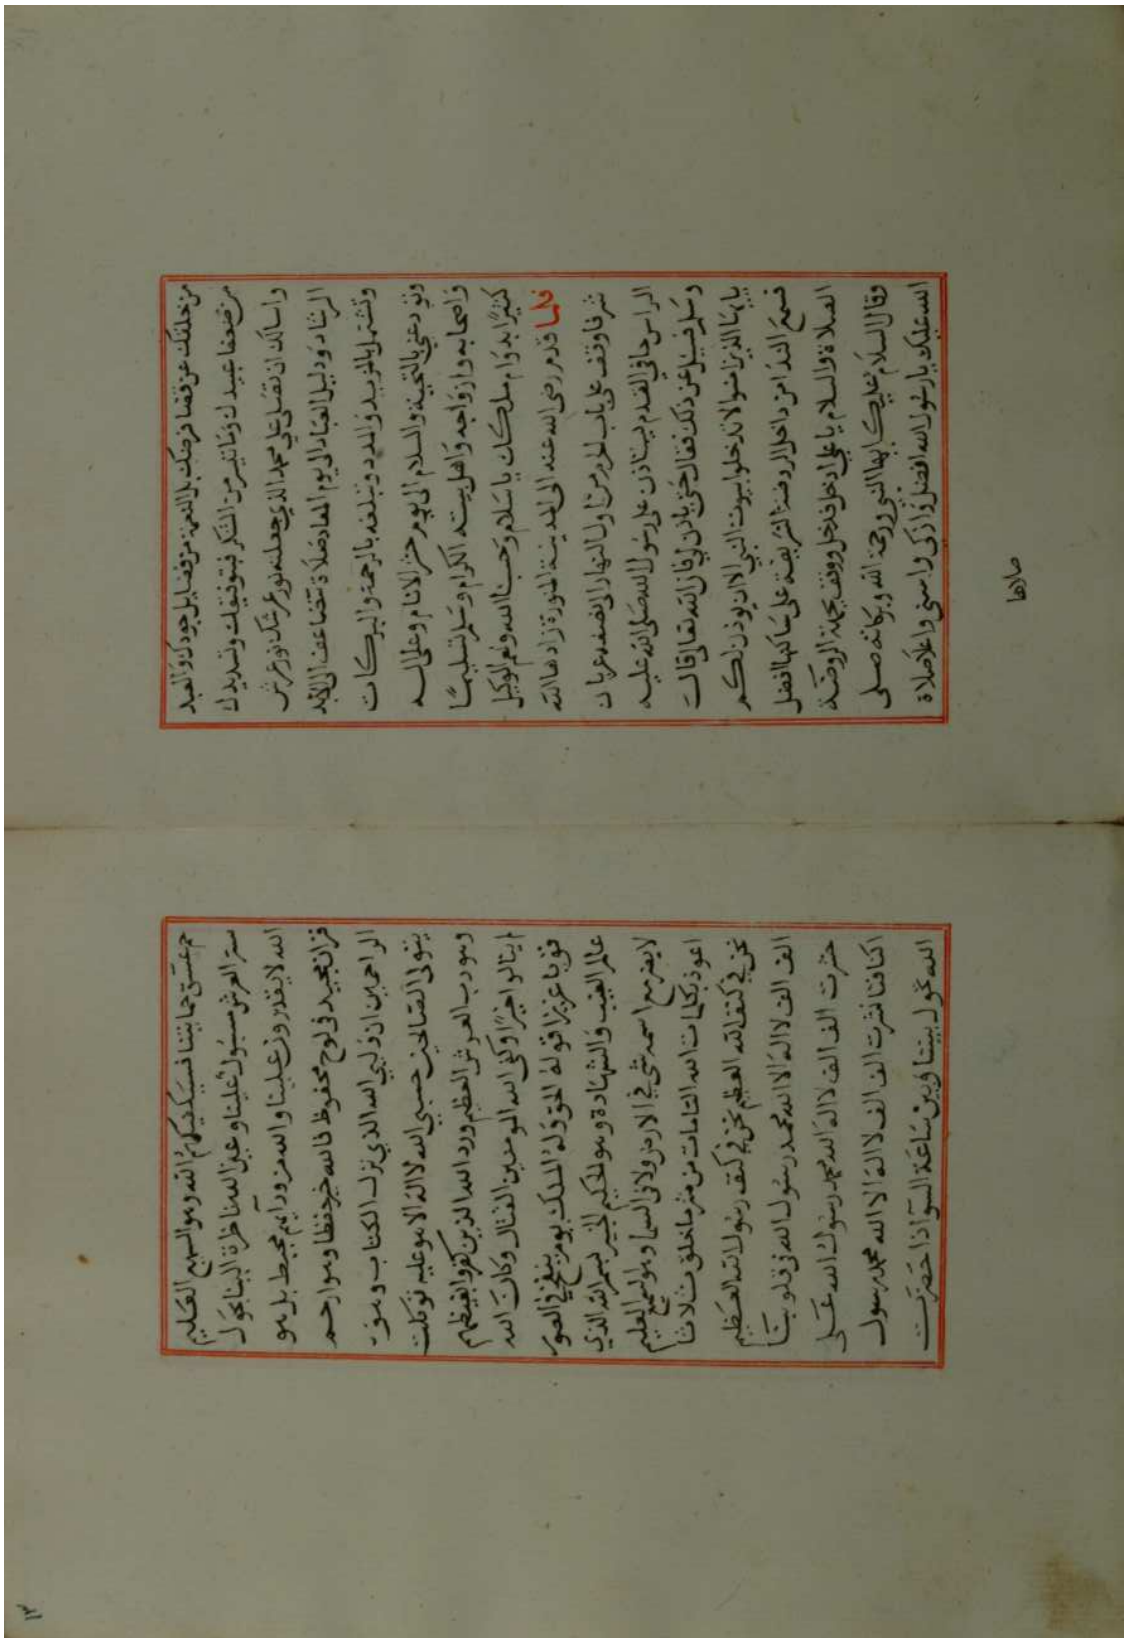 من خلقك عن قضا فرضك بل النعمة من فضايل جودك والعبد
من ضعفا عبيدك وما تيسر من الشكر فبتوفيقك وتسديدك
واسالك ان تصلي على محمد الذي جعلته نور عرشك نور عرش
الرشاد ودليل العباد الى يوم المعاد صلاة تتضاعف الى الابد
وتشتمل بالمزيد والمدد وتبلغه بالرحمة والبركات
وتودعني بالتحية والسلام الى يوم حشر الانام وعلى اله
واصحابه وازواجه واهل بيته الكرام وسلم تسليما
كثيرا بدوام ملكك يا سلام وحسبنا الله ونعم الوكيل
فلما قدم رضى الله عنه الى المدينة المنورة زادها الله
شرفا وقف على باب الحرم من اول النهار الى نصفه عريان
الراس حافي القدم يستاذن على رسول الله صلى الله عليه
وسلم فسيل عن ذلك فقال حتى ياذن لي فان الله تعالى قال
يايها الذين امنوا لا تدخلوا بيوت النبي الا ان يوذن لكم
فسمع الندا من داخل الروضة الشريفة على ساكنها افضل
الصلاة والسلام يا علي ادخل فدخل ووقف بجهة الروضة
وقال السلام عليك ايها النبي ورحمة الله وبركاته صلى
الله عليك يا رسول الله افضل وازكى واسنى واعلا صلاة
صلاها
١٣
حم عسق حمايتنا فسيكفيكهم الله وهو السميع العليم
ستر العرش مسبول علينا وعين الله ناظرة الينا بحول
الله لا يقدرون علينا والله من ورآيهم محيط بل هو
قران مجيد في لوح محفوظ فالله خير حفظا وهو ارحم
الراحمين ان وليي الله الذي نزل الكتاب وهو
يتولى الصالحين حسبي الله لا اله الا هو عليه توكلت
وهو رب العرش العظيم ورد الله الذين كفروا بغيظهم
لم ينالوا خيرا وكفى الله المومنين القتال وكان الله
قويا عزيزا قوله الحق وله الملك يوم ينفخ في الصور
عالم الغيب والشهادة وهو الحكيم الخبير بسم الله الذي
لا يضر مع اسمه شي في الارض ولا في السما وهو السميع العليم
اعوذ بكلمات الله التامات من شر ما خلق ثلاثا
نحن في كنف الله العظيم نحن في كنف رسول الله العظيم
الف الف لا اله الا الله محمد رسول الله في قلوبنا
نشرت الف الف لا اله الا الله محمد رسول الله على
اكتافنا نشرت الف الف لا اله الا الله محمد رسول
الله تحول بيننا وبين ساعة السوآ اذا حضرت